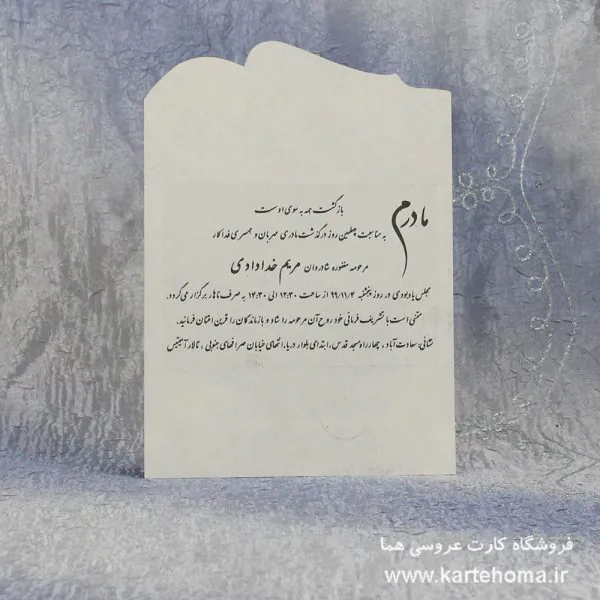 مادرم
بازگشت همه به سوی اوست
به مناسبت چهلمین روز درگذشت مادری مهربان و همسری فداکار
مرحومه مغفوره شادروان مریم خدادادی
مجلس یادبودی در روز پنجشنبه ۹۹/۱۱/۴ از ساعت ۱۲:۳۰ الی ۱۴:۳۰ به صرف ناهار برگزار می‌گردد.
متمنی است با تشریف فرمائی خود روح آن مرحومه را شاد و بازماندگان را قرین امتنان فرمائید.
نشانی: سعادت آباد ، چهارراه سجد قدس، ابتدای بلوار دریا، انتهای خیابان صرافهای جنوبی ، تالار
فروشگاه کارت عروسی هما
www.kartehoma.ir